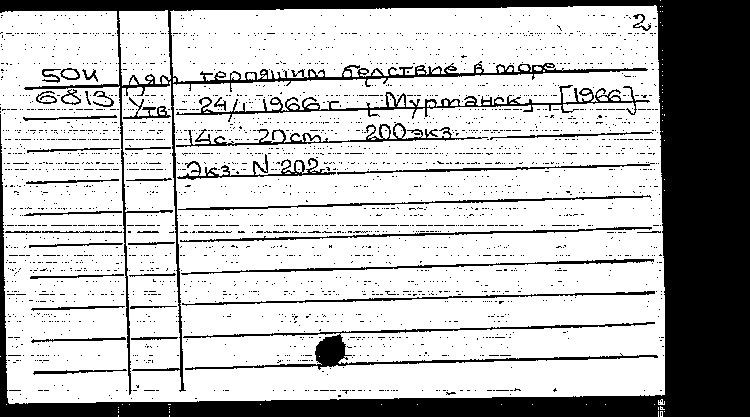 2
50и лям, терпящим бедствие в море
6813 Утв. 24/I 1966 г. [Мурманск], [1966].
14с. 20см. 200экз.
Экз. N 202.